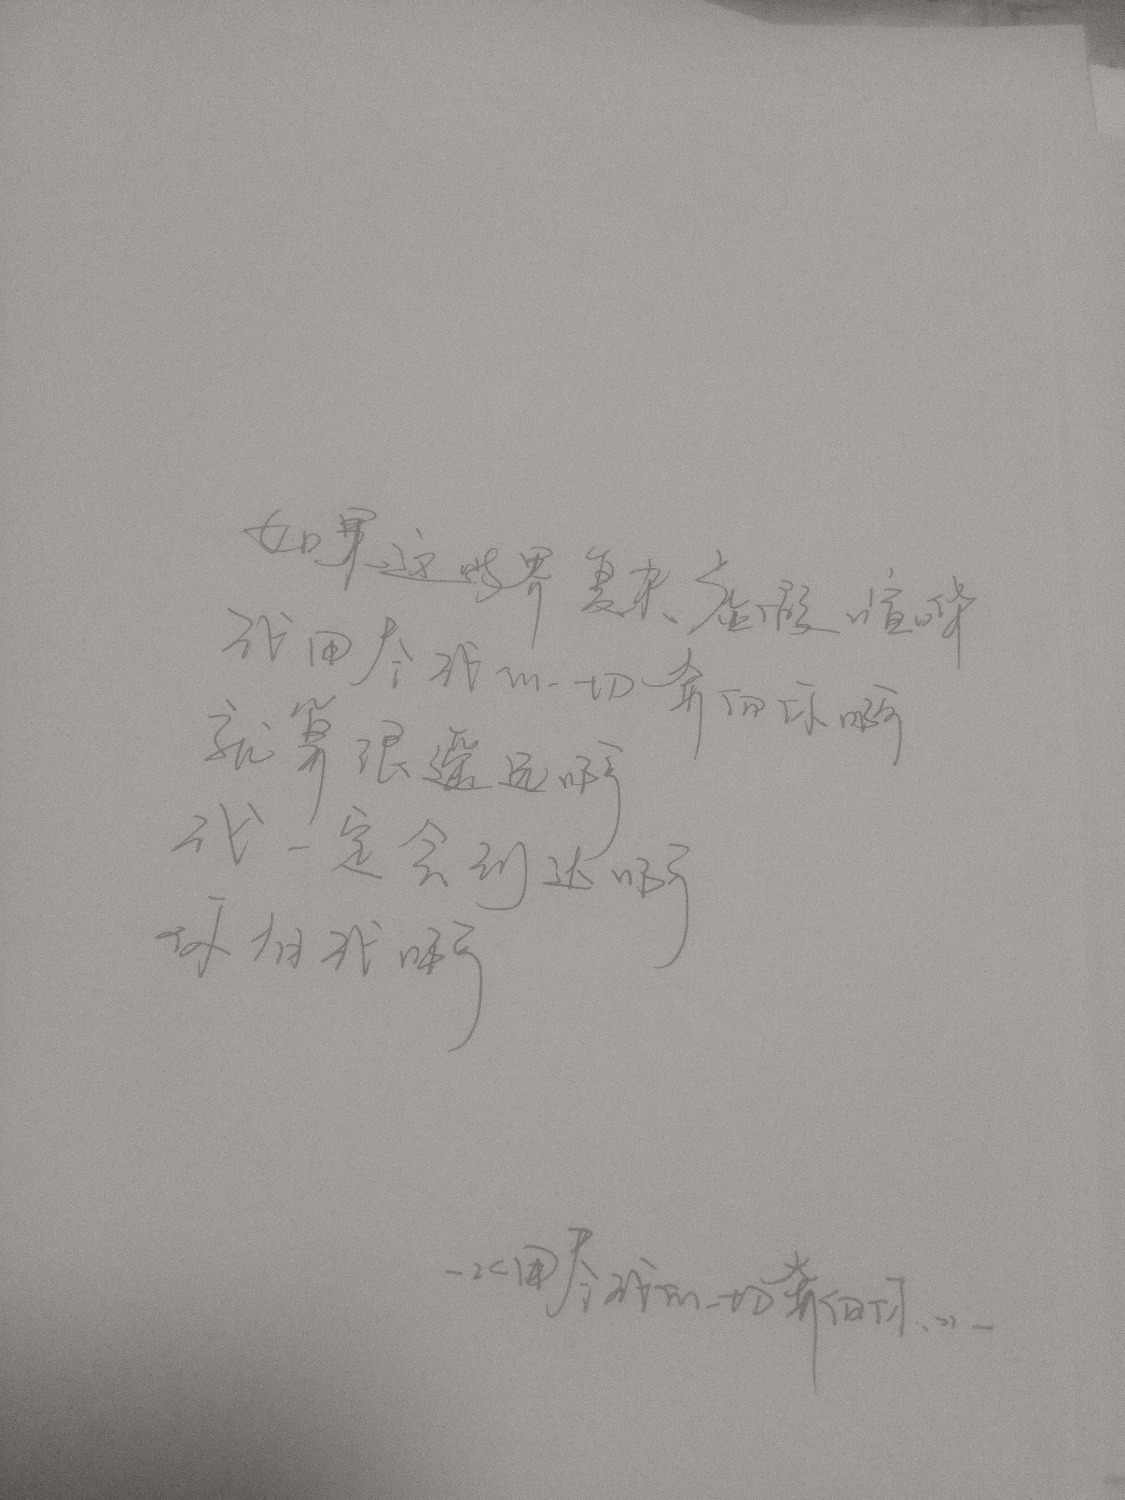 如果这世界复杂、虚假、喧哗
我用尽我的一切奔向你啊
就算很遥远啊
我一定会到达啊
你相信我啊
—《用尽我的一切奔向你……》—